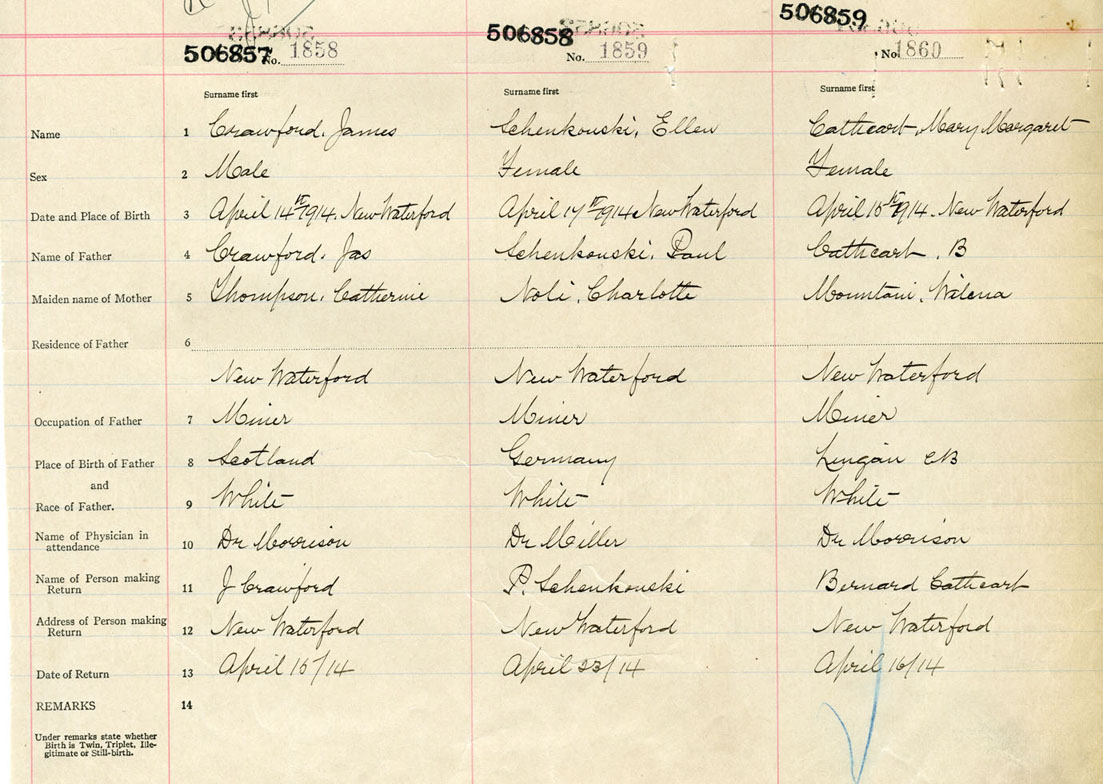 506857 No. 1858 506858 No. 1859 506859 No. 1860
Surname first Surname first Surname first
Name 1 Crawford, James Schenkouski, Ellen Cathcart, Mary Margaret
Sex 2 Male Female Female
Date and Place of Birth 3 April 14th 1914. New Waterford April 17th 1914 New Waterford April 15th 1914. New Waterford
Name of Father 4 Crawford, Jas Schenkouski, Paul Cathcart, B
Maiden name of Mother 5 Thompson, Catherine Noli, Charlotte Mountain, Wilena
Residence of Father 6
New Waterford New Waterford New Waterford
Occupation of Father 7 Miner Miner Miner
Place of Birth of Father 8 Scotland Germany Lingan CB
and
Race of Father. 9 White White White
Name of Physician in
attendance 10 Dr Morrison Dr Miller Dr Morrison
Name of Person making
Return 11 J Crawford P. Schenkouski Bernard Cathcart
Address of Person making
Return 12 New Waterford New Waterford New Waterford
Date of Return 13 April 15/14 April 23/14 April 16/14
REMARKS 14
Under remarks state whether
Birth is Twin, Triplet, Ille-
gitimate or Still-birth.